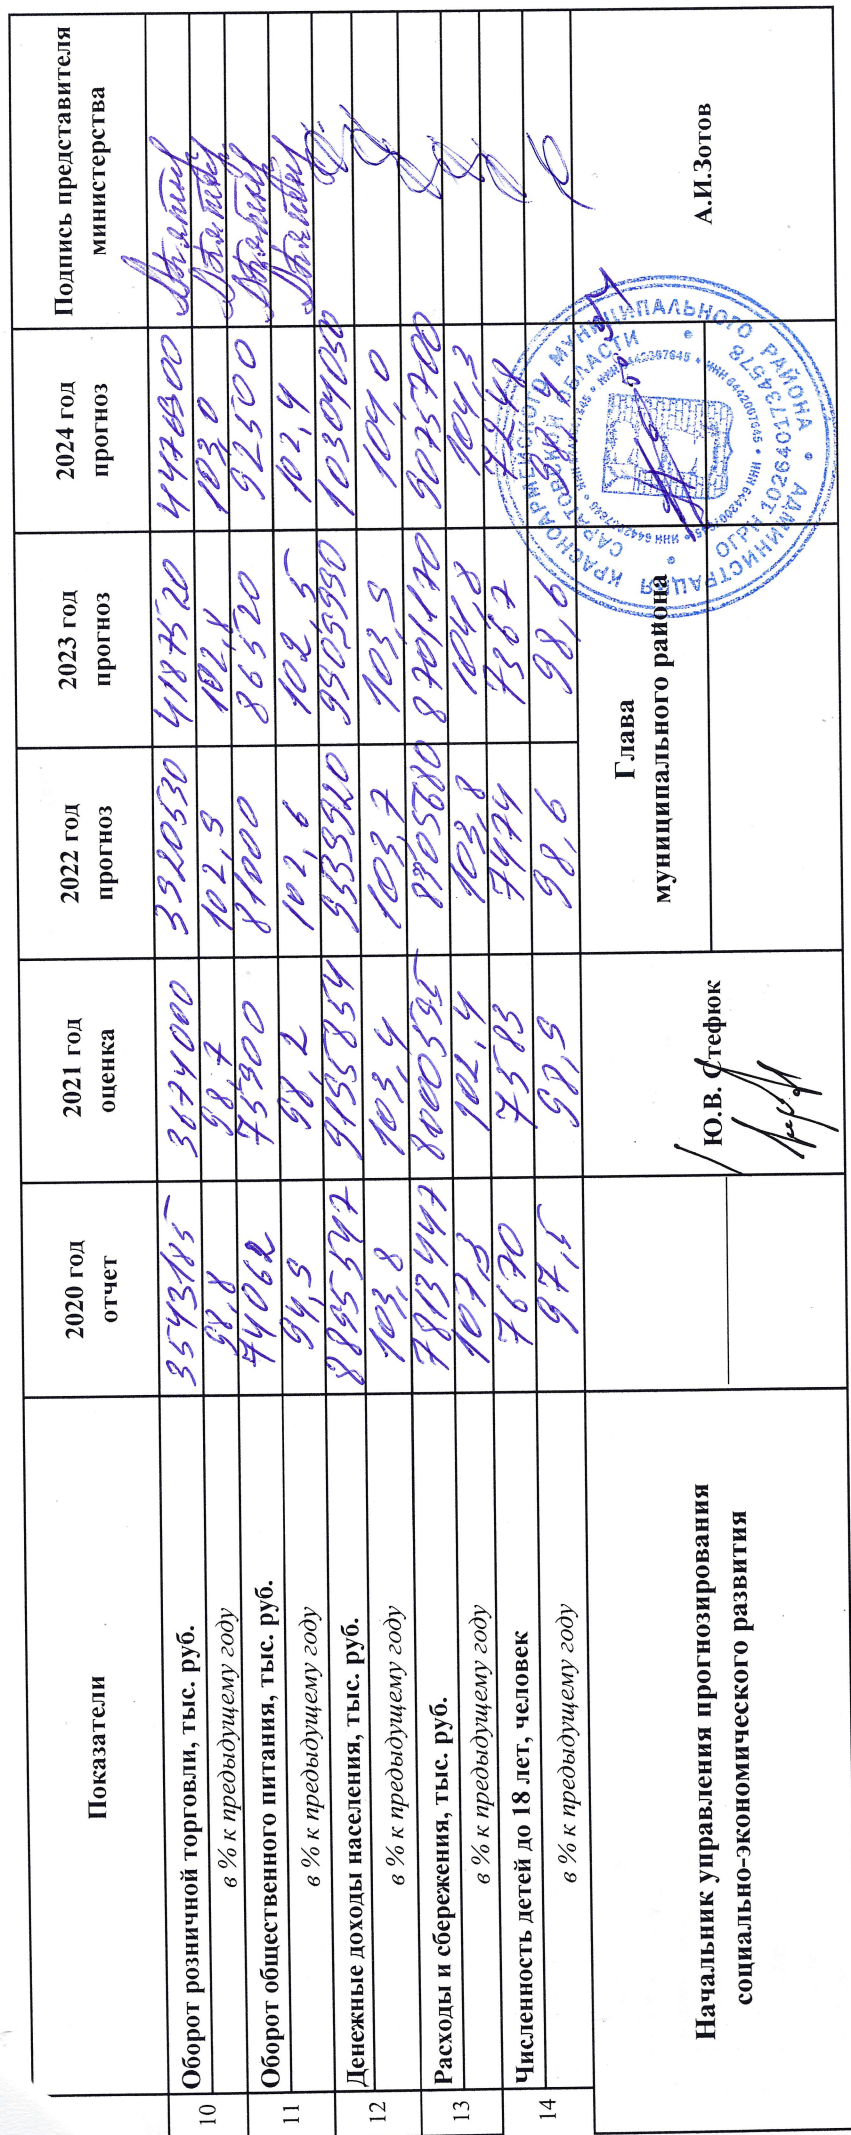 Показатели 2020 год отчет 2021 год оценка 2022 год прогноз 2023 год прогноз 2024 год прогноз Подпись представителя министерства
10 Оборот розничной торговли, тыс. руб. 3543185 3674000 3920530 4187520 4476300
в % к предыдущему году 98,8 98,7 102,9 102,8 103,0
11 Оборот общественного питания, тыс. руб. 74062 75900 81000 86520 92500
в % к предыдущему году 94,9 98,2 102,6 102,5 102,4
12 Денежные доходы населения, тыс. руб. 8895547 9195854 9539920 9909990 10304030
в % к предыдущему году 103,8 103,4 103,7 103,9 104,0
13 Расходы и сбережения, тыс. руб. 7813447 8000595 8305680 8701170 9075700
в % к предыдущему году 107,3 102,4 103,8 104,8 104,3
14 Численность детей до 18 лет, человек 7670 7583 7474 7367 7248
в % к предыдущему году 97,5 98,9 98,6 98,6
Начальник управления прогнозирования
социально-экономического развития
Ю.В. Стефюк
Глава
муниципального района
А.И.Зотов
АДМИНИСТРАЦИЯ КРАСНОАРМЕЙСКОГО МУНИЦИПАЛЬНОГО РАЙОНА
САРАТОВСКОЙ ОБЛАСТИ
ОГРН 1026401734578